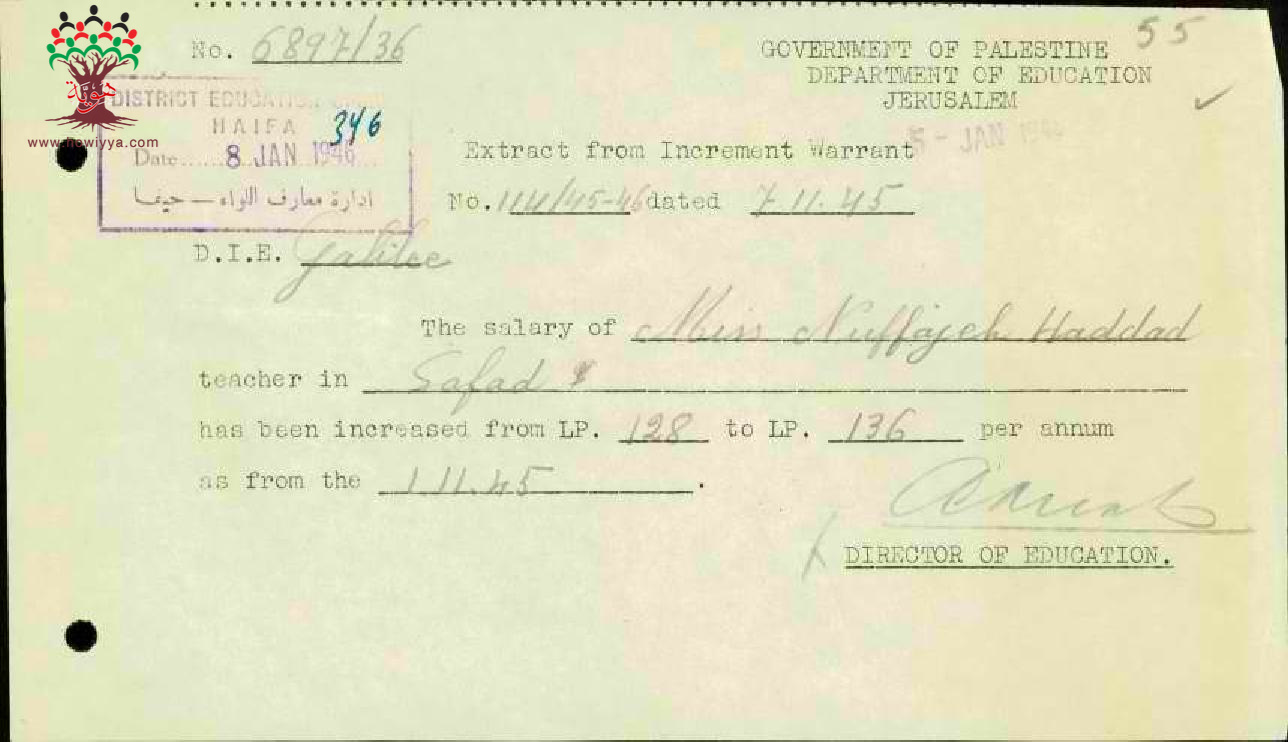 55
No. 6897/36
GOVERNMENT OF PALESTINE
DEPARTMENT OF EDUCATION
JERUSALEM
هوية
www.howiyya.com
DISTRICT EDUCATION
HAIFA
346
Date...... 8 JAN 1946
ادارة معارف اللواء — حيفا
5 - JAN 1946
Extract from Increment Warrant
No. 114/45-46 dated 7.11.45
D.I.E. Galilee
The salary of Miss Nuffajeh Haddad
teacher in Safad
has been increased from LP. 128 to LP. 136 per annum
as from the 1.11.45.
DIRECTOR OF EDUCATION.